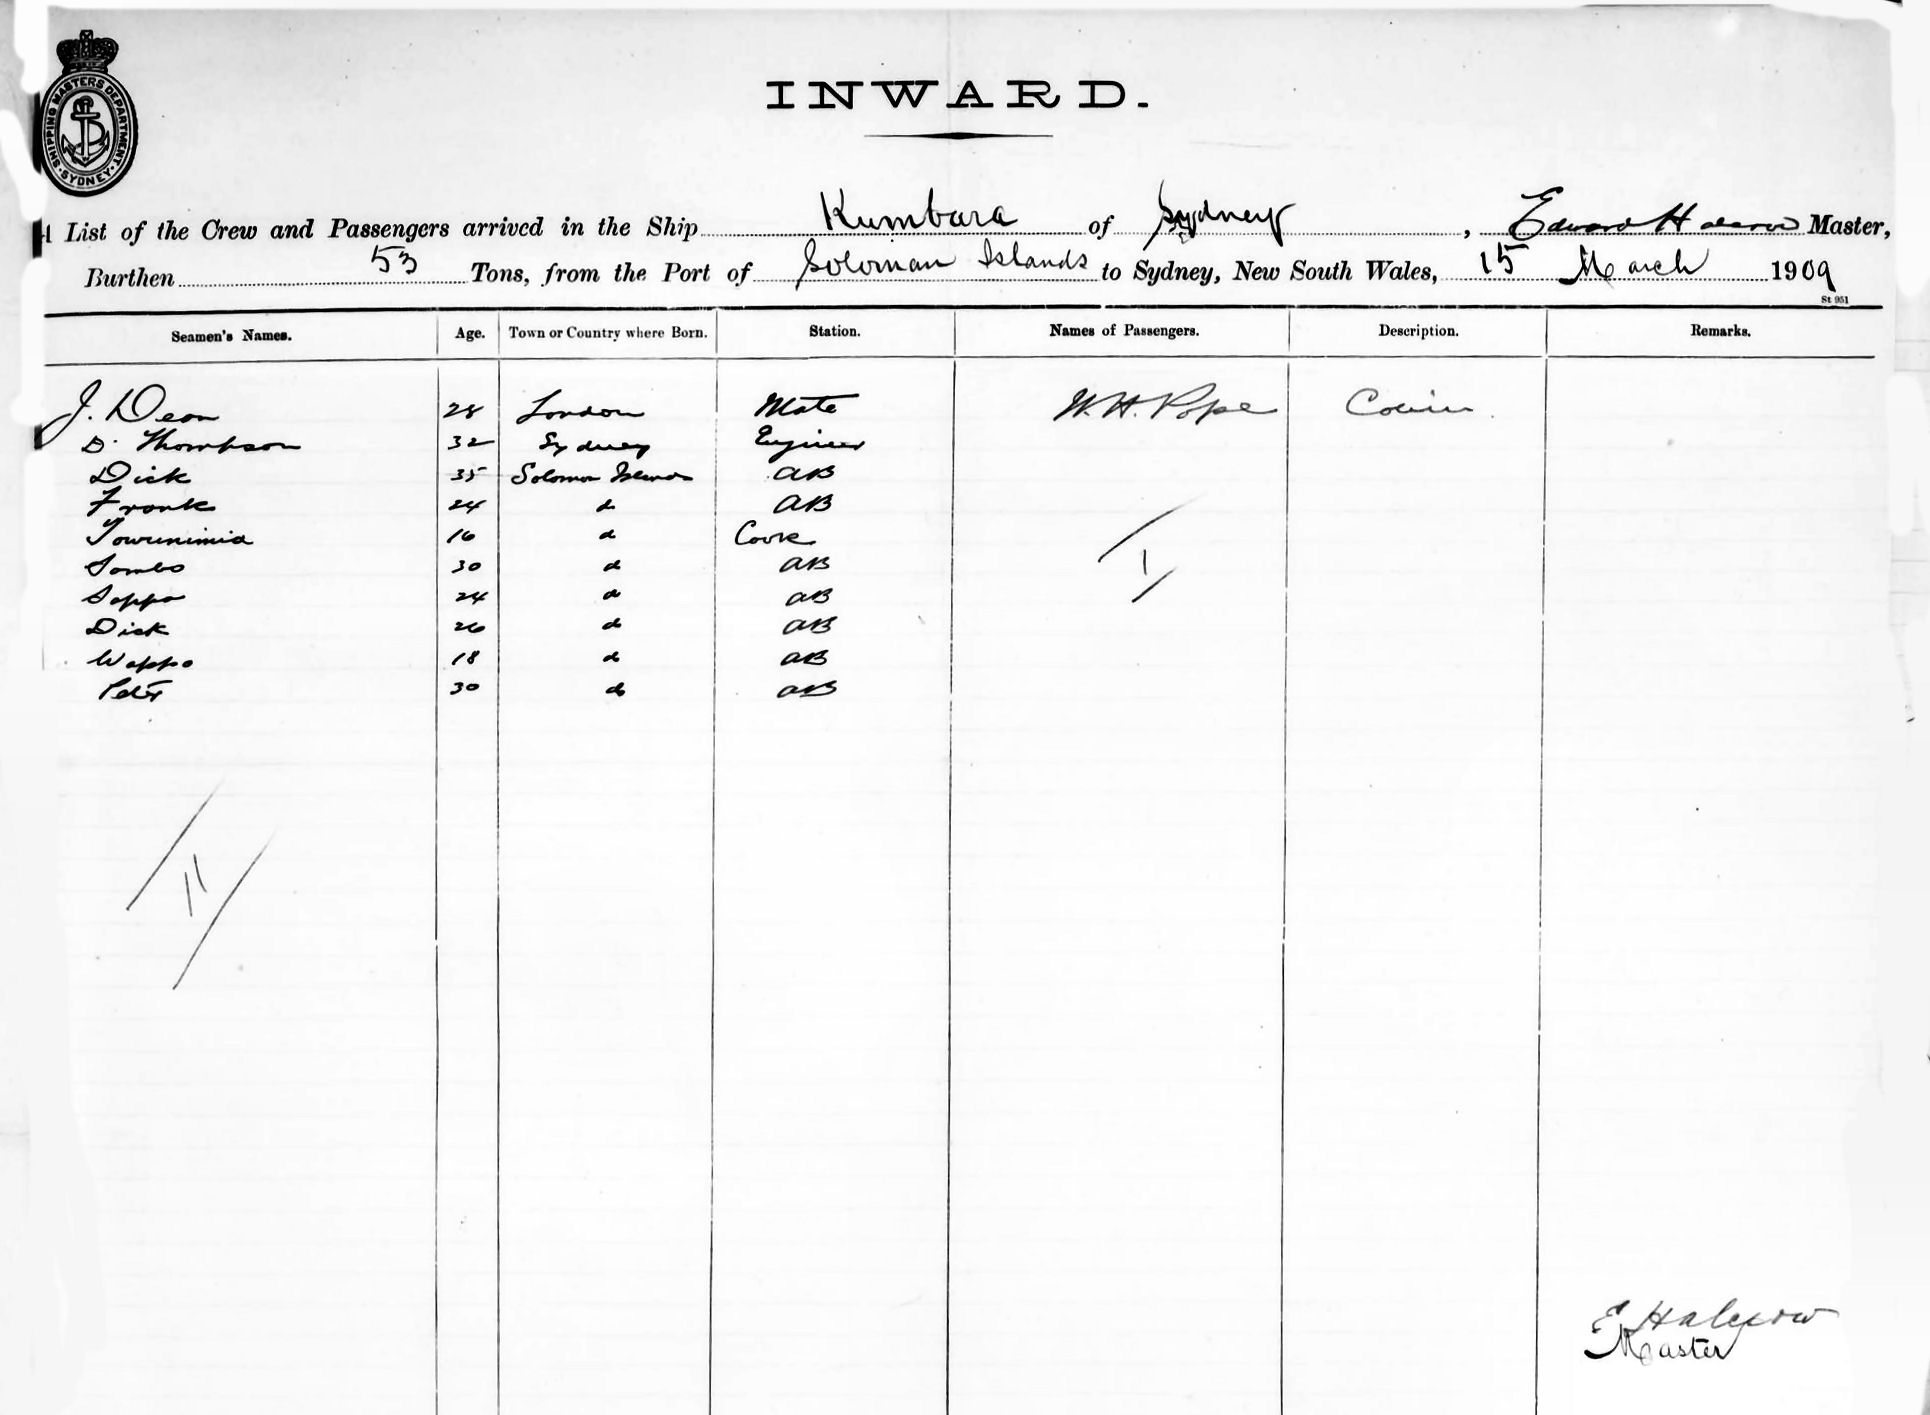 SHIPPING MASTERS DEPARTMENT. SYDNEY.
INWARD.
A List of the Crew and Passengers arrived in the Ship Kumbara of Sydney, Edward Halcrow Master,
Burthen 53 Tons, from the Port of Soloman Islands to Sydney, New South Wales, 15 March 1909
St 951
Seamen's Names. Age. Town or Country where Born. Station. Names of Passengers. Description. Remarks.
J. Dean 28 London Mate W. H. Pope Cabin
D. Thompson 32 Sydney Engineer
Dick 35 Solomon Islands AB
Frank 24 do AB
16 do Cook
30 do AB
24 do AB
Dick 26 do AB
Wappo 18 do AB
Peter 30 do AB
1
11
E Halcrow
Master